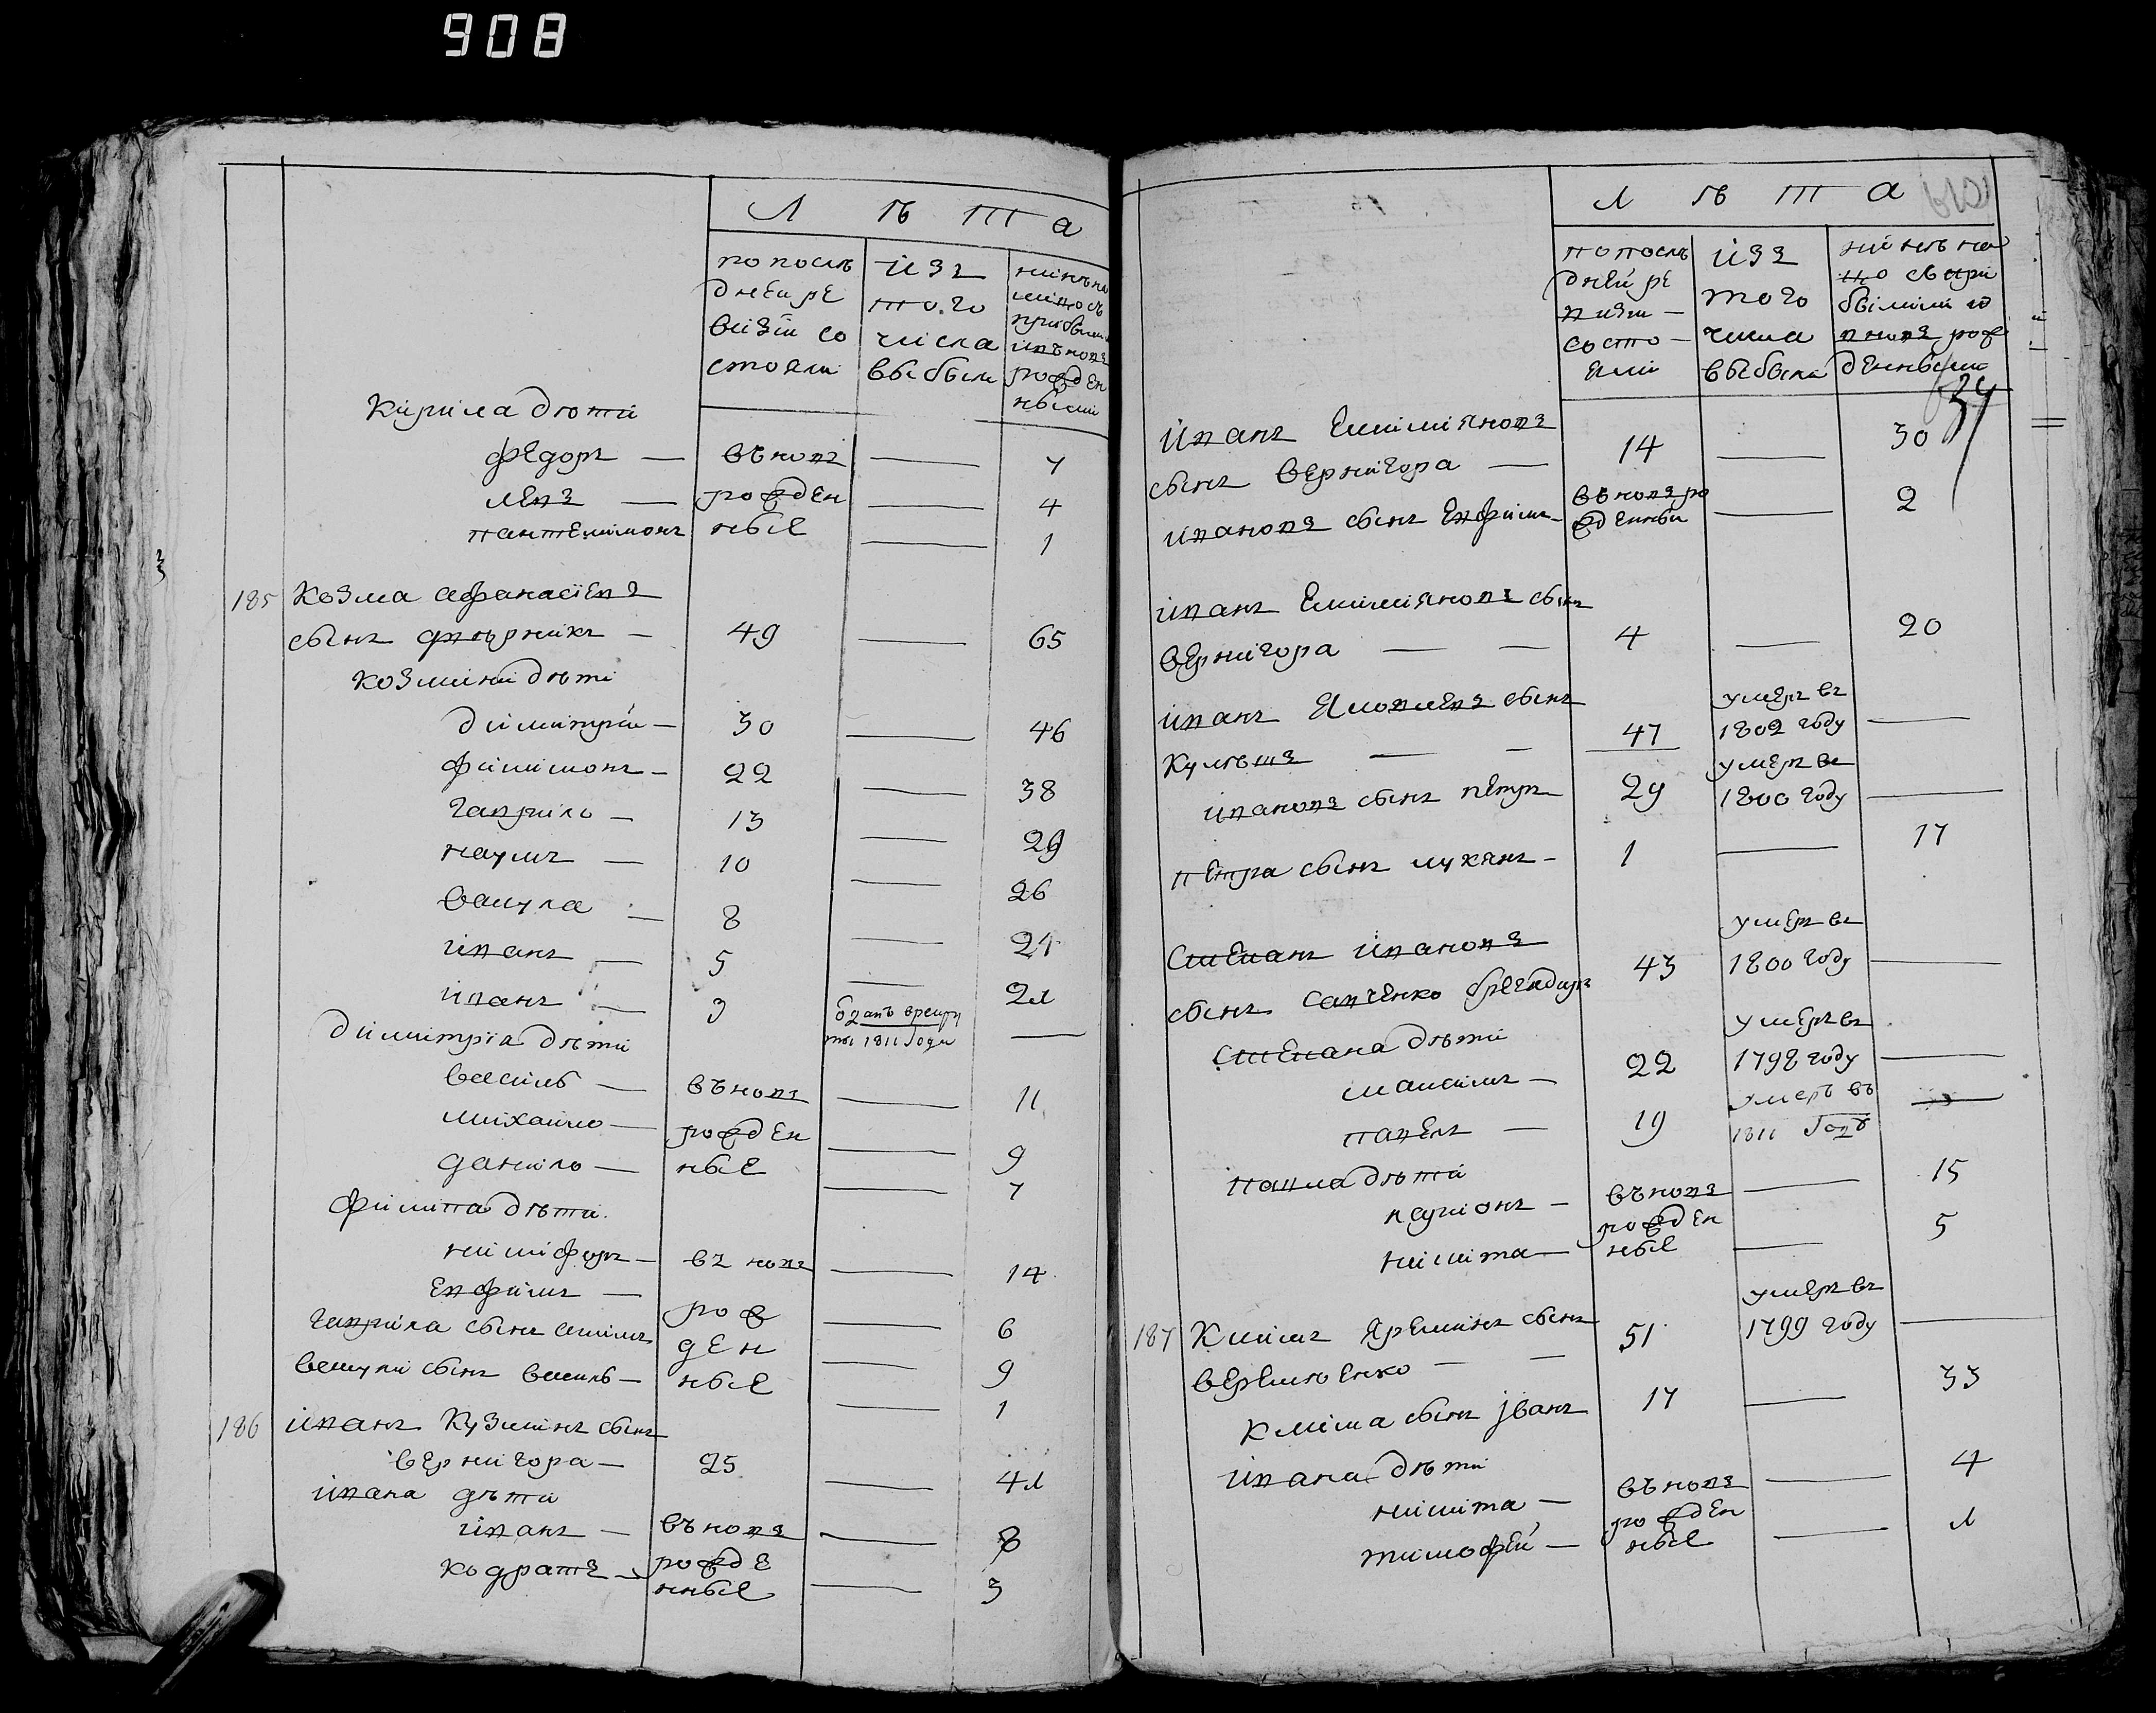 908
Л ѣ т а
по послѣ
дней ре
визіи со
стояли
изъ
того
числа
выбыли
нинѣ на
лицо съ
прибилими
и вновь
рожден
ными
Кирила дѣти
федоръ — вновь — 7
левъ — рожден — 4
пантелимонъ ные — 1
185 Козма афанасіевъ
сынъ дтѣрникъ — 49 — 65
Козмини дѣти
димитрій — 30 — 46
филимонъ — 22 — 38
гаврило — 13 — 29
наумъ — 10 — 26
вакула — 8 — 24
иванъ — 5 — 21
иванъ — 3 отданъ врекру
ты 1811 года —
димитрія дѣти
василь — въновь — 11
михайло — рожден — 9
данило — ные — 7
филипа дѣти
никифоръ — въ новь — 14
Евфимъ — рож — 6
гаврила сынъ ден — 9
вакули сынъ василь — ные — 1
186 иванъ Кузминъ сынъ
вернигора — 25 — 41
ивана дѣти
иванъ — въновь — 8
кодратъ — рожде — 3
нные
Л ѣ т а
по послѣ
дней ре
визіи —
состо —
яли
изъ
того
числа
выбыли
нинѣ на
ицо съ при
былими и
вновь рож
денными
634
Иванъ Емилияновъ
сынъ вернигора — 14 — 30
ивановъ сынъ Евфимъ — въновь ро — 2
жденны
иванъ Емилияновъ сынъ
вернигора — — 4 — 20
иванъ Яковлевъ сынъ
Кулѣшъ — — 47 умеръ въ
1802 году —
ивановъ сынъ петръ 29 умеръ въ
1800 году —
петра сынъ лукянъ — 1 — 17
Степанъ ивановъ
сынъ Савченко 43 умеръ въ
1800 году —
Степана дѣти
максимъ — 22 умеръ въ
1798 году —
павелъ — 19 умеръ въ
1811 году —
павла дѣти
ларионъ — въновь — 15
никита — рожден — 5
ные
187 Климъ Яреминъ сынъ 51 умеръ въ
веремѣенко — — 1799 году —
Клима сынъ іванъ 17 — 33
ивана дѣти
никита — въновь — 4
тимофей — рожден — 1
ные